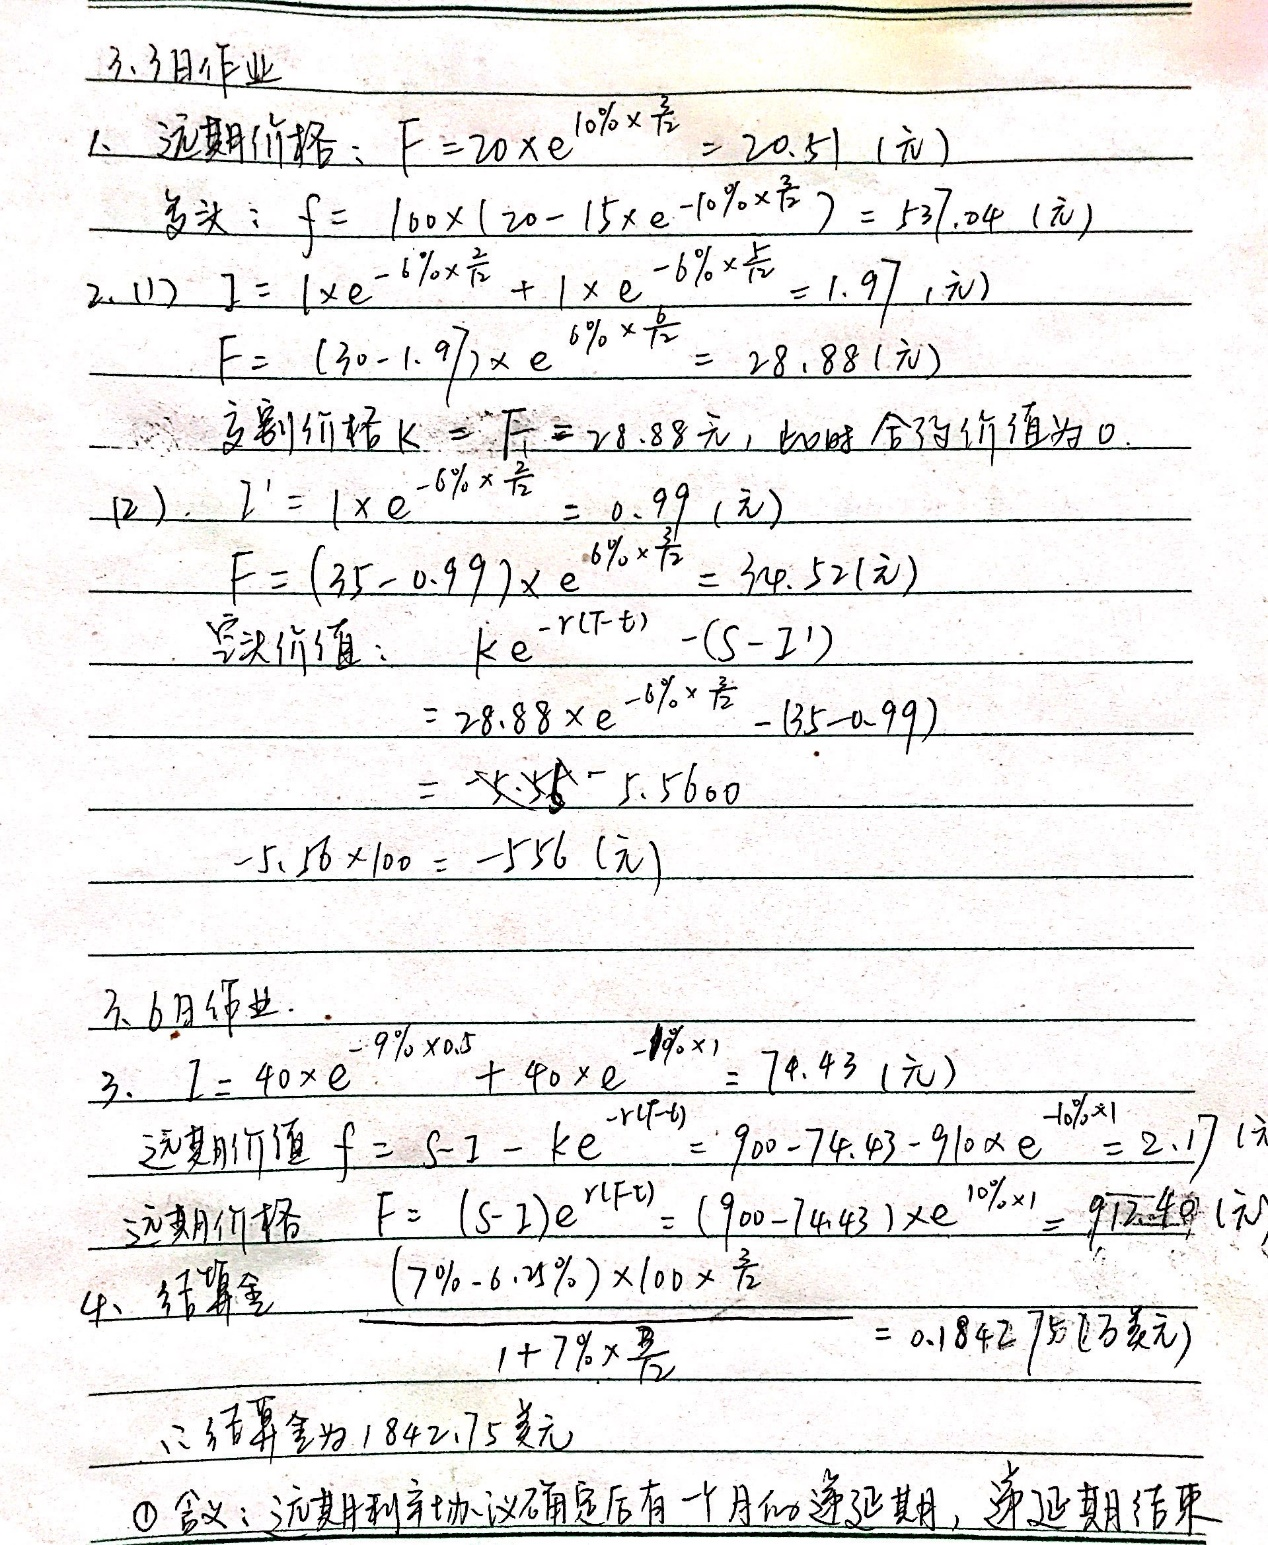 3.3日作业
1、远期价格：F=20×e^{10%×3/12}=20.51（元）
多头：f=100×(20-15×e^{-10%×3/12})=537.04（元）
2.(1) I=1×e^{-6%×2/12}+1×e^{-6%×5/12}=1.97（元）
F=(30-1.97)×e^{6%×6/12}=28.88(元)
交割价格K=F=28.88元，此时合约价值为0.
(2). I'=1×e^{-6%×2/12}=0.99（元）
F=(35-0.99)×e^{6%×3/12}=34.52(元)
空头价值：Ke^{-r(T-t)}-(S-I')
=28.88×e^{-6%×3/12}-(35-0.99)
=-5.5600
-5.56×100=-556（元）
3.6日作业.
3. I=40×e^{-9%×0.5}+40×e^{-10%×1}=74.43（元）
远期价值 f=S-I-Ke^{-r(T-t)}=900-74.43-910×e^{-10%×1}=2.17（元
远期价格 F=(S-I)e^{r(T-t)}=(900-74.43)×e^{10%×1}=912.40（元
4、结算金 (7%-6.25%)×100×3/12
/ 1+7%×3/12 =0.184275（万美元）
∴结算金为1842.75美元
①含义：远期利率协议确定后有一个月的递延期，递延期结束